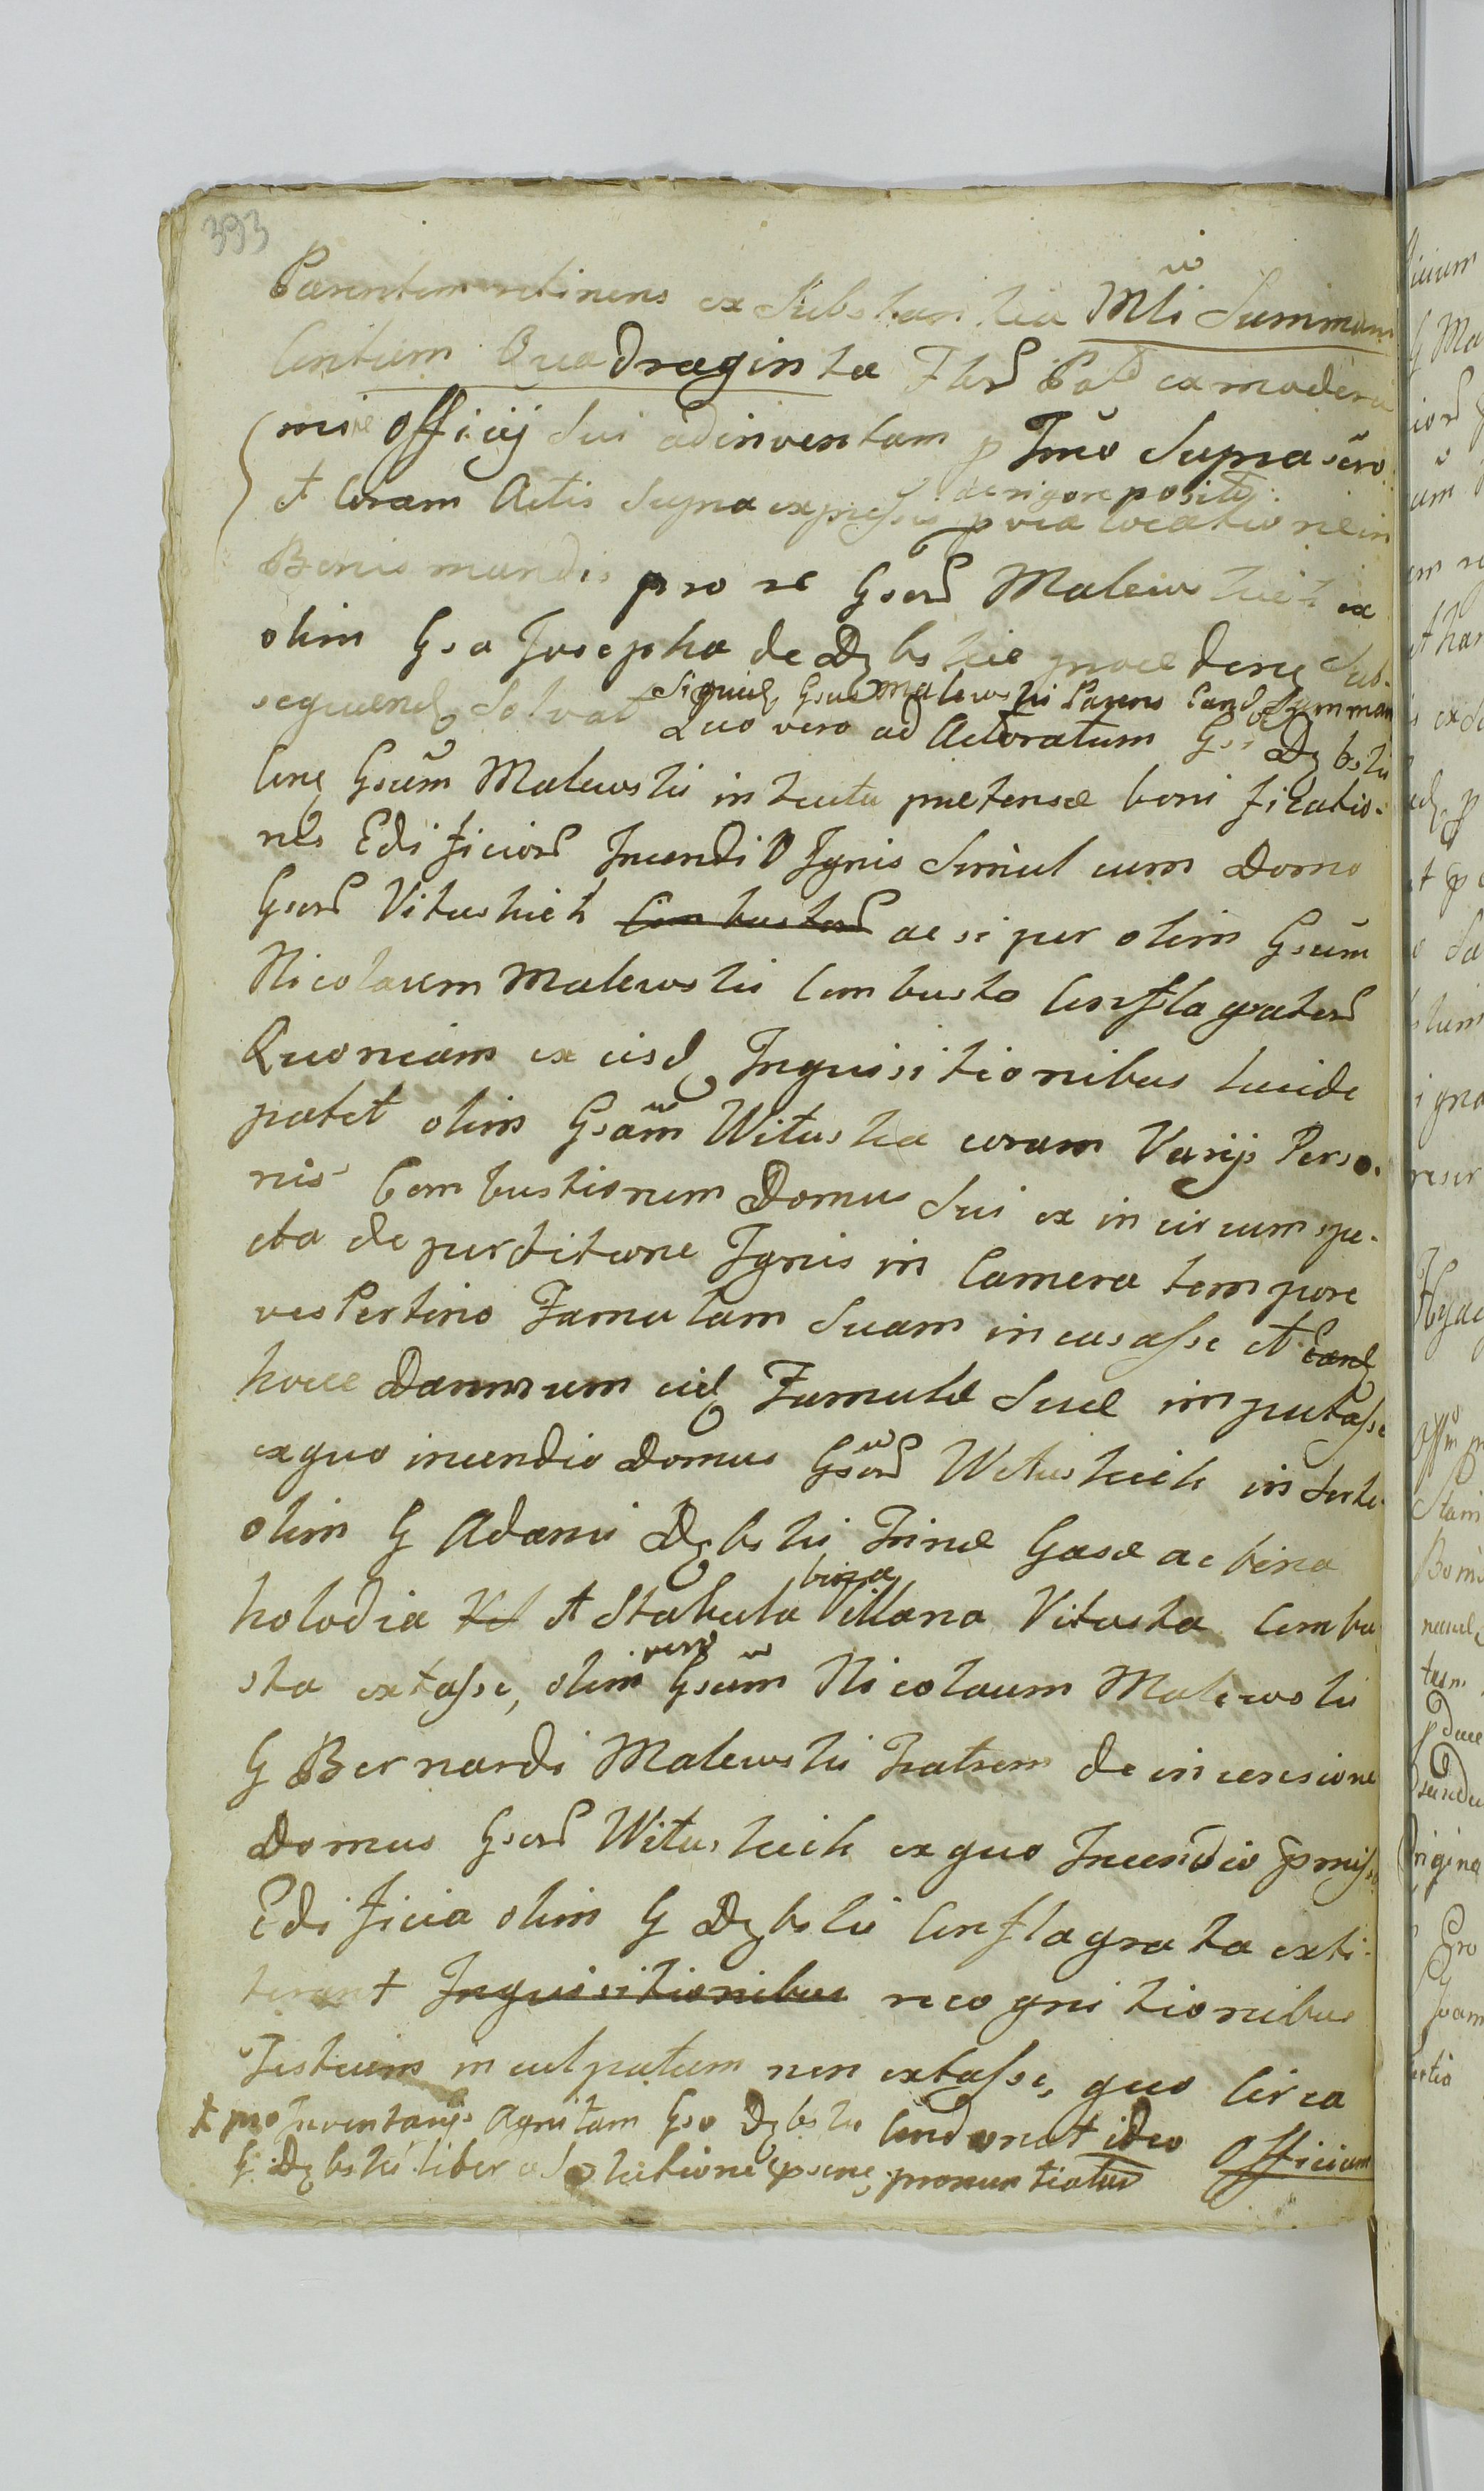 393
Parentem retinens ex Substantia Mli Summam
Centum Quadraginta Flor Pol ex modera
mine Officij Sui adinventam p Tmo Suprascro
et Coram Actis Supra expressis de rigore posito
pvia locatione in
Bonis mundis pro se Gsor Malewskich ex
olim Gsa Josepha de Dębskie procedenq Sub-
sequenq Solvat Siquid Gsus Malewski Parens eand Summam
Quo vero ad Actoratum Gsi Dębski
Gsum Malewski intuitu pretensae bonificatio-
nis Edificior Incendio Ignis Simul cum Domo
Gsor Vituskich Combustor ac si per olim Gsum
Nicolaum Malewski Combusto Conflagrator
Quoniam ex iisd Inquisitionibus lucide
patet olim Gsam Wituska coram Varijs Perso-
nis Combustionem Domus Sui ex incircumspe-
cta deperditione Ignis in Camera tempore
vespertino Famulam Suam incusasse et Eand
hocce Damnum eid Famulae Suae imputasse
ex quo incendio Domus Gsor Wituskich in Sorte
olim G Adami Dębski Trinae Casae ac bina
holodia et Stabula bina Villana Vituska Combu
sta extasse, olim vero Gsum Nicolaum Malewski
G Bernardi Malewski Fratrem de incensione
Domus Gsor Wituskich ex quo Incendio pmiss
Edificia olim G Dębski Conflagrata exti-
terant Inquisitionibus recognitionibus
Testium inculpatum non extasse, quo Circa
+ pro Inventarijs Agnitam Gso Dębski Condonat ideo Officium
G Dębski liber a Solutione psenq pronuntiatur